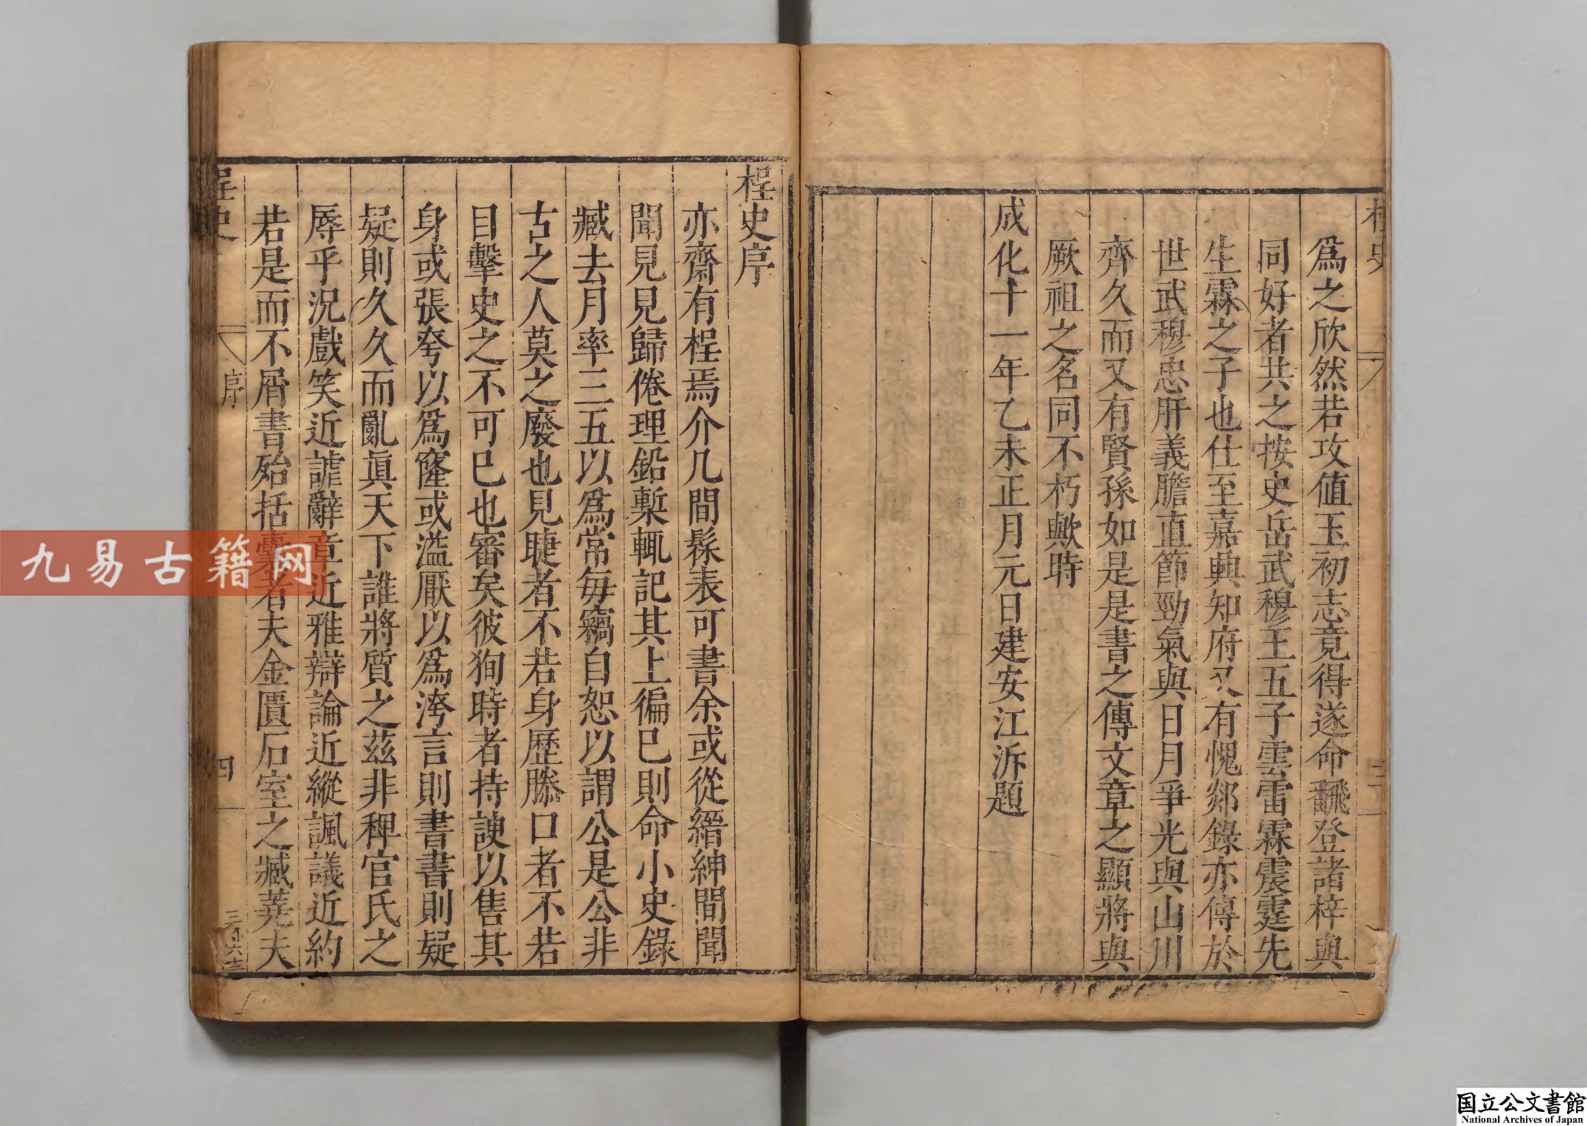 爲之欣然若攻值玉初志竟得遂命飜登諸梓與
同好者共之按史岳武穆王五子雲雷霖震霆先
生霖之子也仕至嘉興知府又有愧郯錄亦傳於
世武穆忠肝義膽直節勁氣與日月爭光與山川
齊久而又有賢孫如是是書之傳文章之顯將與
厥祖之名同不朽歟時
成化十一年乙未正月元日建安江泝題
桯史序
亦齋有桯焉介几間髹表可書余或從縉紳間聞
聞見見歸倦理鉛槧輒記其上徧已則命小史錄
臧去月率三五以爲常每竊自恕以謂公是公非
古之人莫之廢也見睫者不若身歷滕口者不若
目擊史之不可已也審矣彼狥時者持諛以售其
身或張夸以爲窿或溢厭以爲洿言則書書則疑
疑則久久而亂眞天下誰將質之茲非稗官氏之
辱乎況戲笑近謔辭章近雅辯論近縱諷議近約
若是而不屑書殆括囊者夫金匱石室之臧蕘夫
桯史
序
四
九易古籍网
国立公文書館
National Archives of Japan